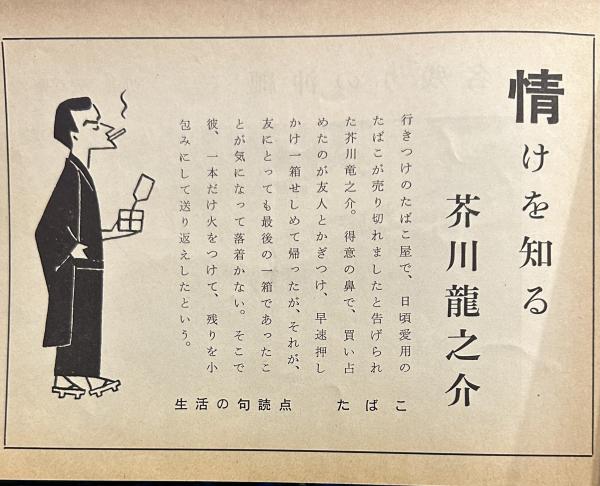 情けを知る
芥川龍之介
行きつけのたばこ屋で、日頃愛用の
たばこが売り切れましたと告げられ
た芥川竜之介。得意の鼻で、買い占
めたのが友人とかぎつけ、早速押し
かけ一箱せしめて帰ったが、それが、
友にとっても最後の一箱であったこ
とが気になって落着かない。そこで
彼、一本だけ火をつけて、残りを小
包みにして送り返えしたという。
生活の句読点　たばこ